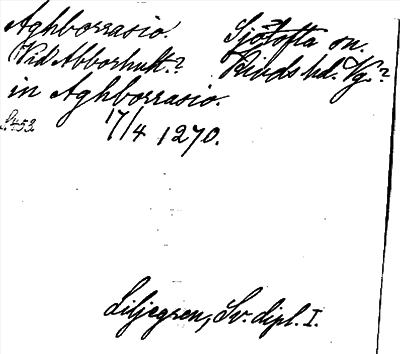 Aghborrasio. Sjötofta sn.
Vid Abborhult? Kinds hd. Vg.?
in Aghborrasio.
S. 453 17/4 1270.
Liljegren, Sv. dipl. I.